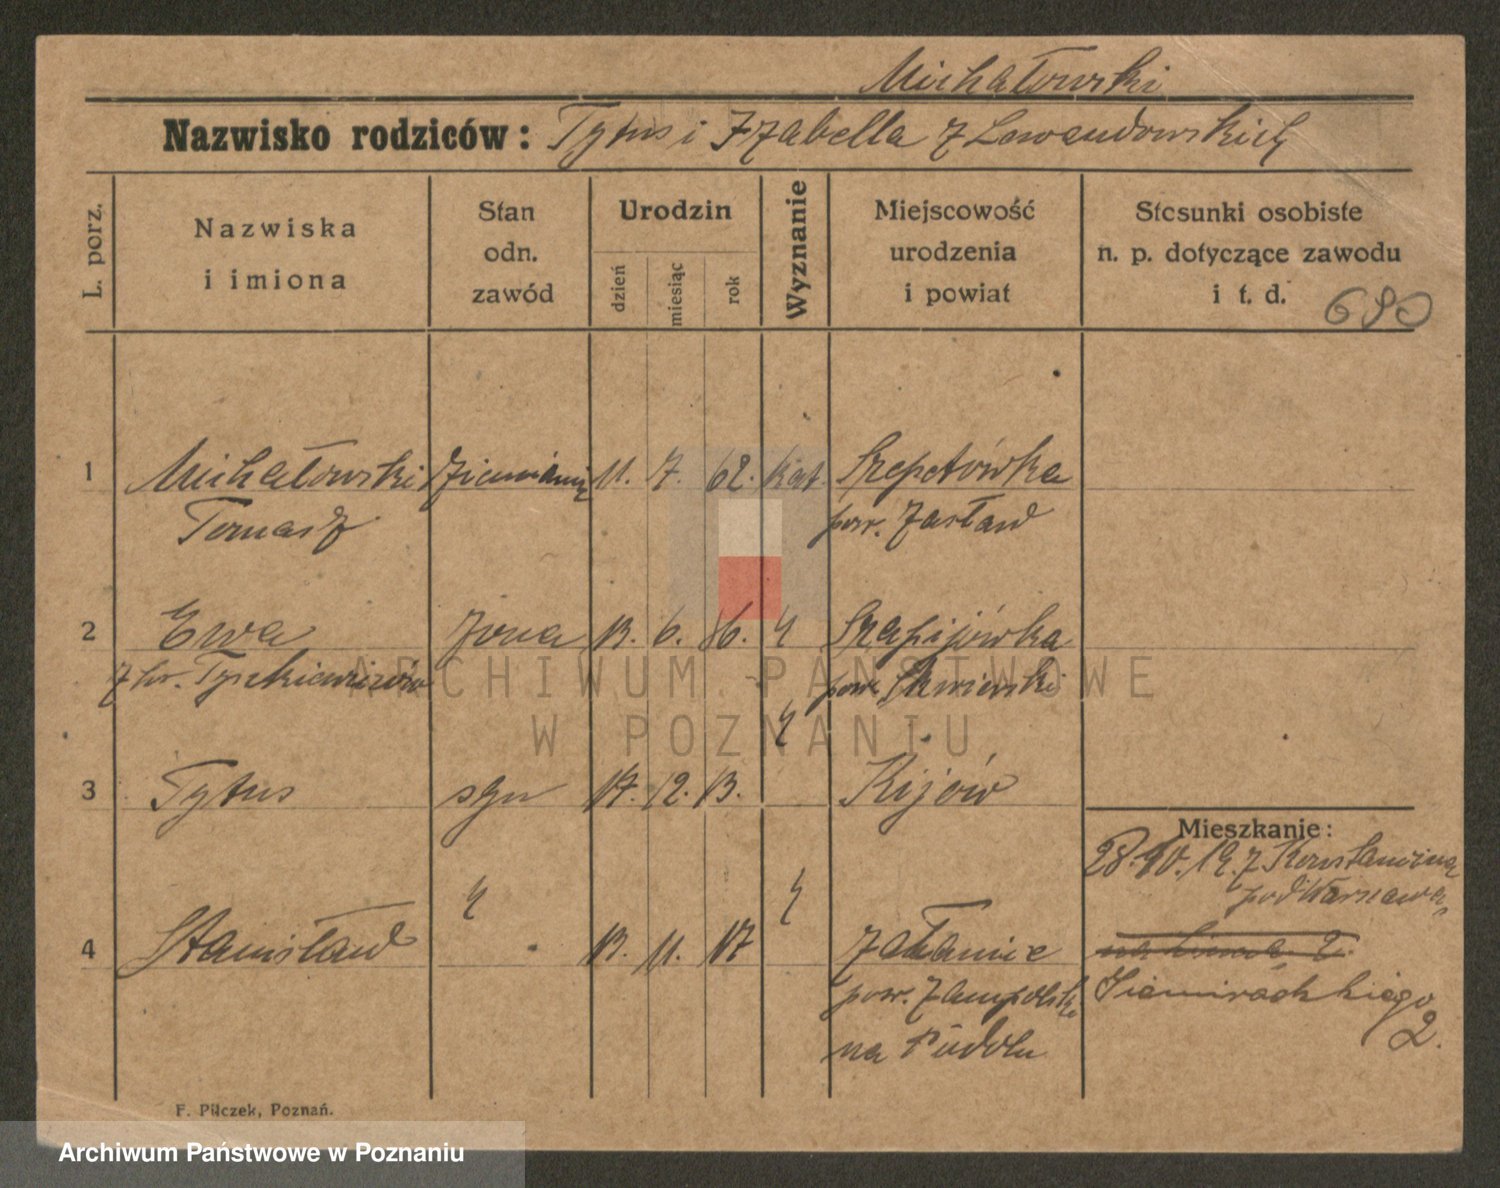 Michałowski
Nazwisko rodziców: Tytus i Izabella z Lewandowskich
L. porz.
Nazwiska
i imiona
Stan
odn.
zawód
Urodzin
dzień
miesiąc
rok
Wyznanie
Miejscowość
urodzenia
i powiat
Stosunki osobiste
n. p. dotyczące zawodu
i t. d.
690
1 Michałowski Ziemianin 11. 7. 62. kat. Szepetówka
Tomasz pow. Zasław
2 Ewa żona 13. 6. 86. " Szapijówka
z hr. Tyszkiewiczów pow. Skwierski
"
3 Tytus syn 17. 12. 13. Kijów
Mieszkanie:
28.10.19. z Konstancina
pod Warszawą
4 Stanisław " 13. 11. 17 "
pow. Jampolski
na Podolu
Siemiradzkiego
2.
F. Pilczek, Poznań.
ARCHIWUM PAŃSTWOWE
W POZNANIU
Archiwum Państwowe w Poznaniu